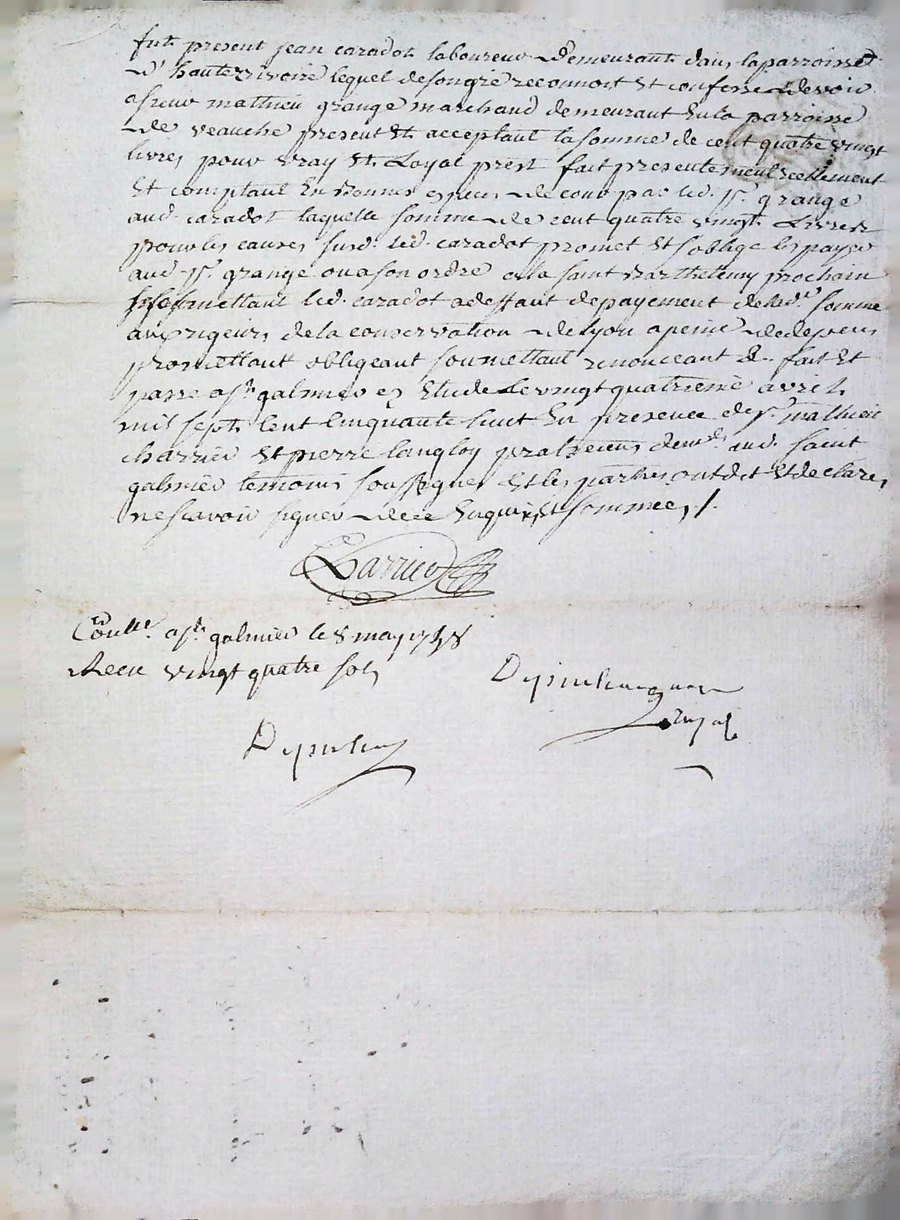 fut present jean caradot laboureur demeurant dans laparroisse
d'hauterivoire lequel desongré reconnoit et confesse devoir
asieur mathieu grange marchand demeurant enla parroisse
de veauche present et acceptant lasomme de cent quatre vingt
livres pour vray et Loyal prest fait presentement reellement
et comptant En bonnes especes de cour par led. sr. grange
aud. caradot laquelle somme de cent quatre vingt Livres
pour les causes susd. led. caradot promet et soblige les payer
aud. sr. grange ou ason ordre a la saint Barthelemy prochain
se soumettant led. caradot adeffaut depayement delad. somme
aux rigeurs dela conservation de Lyon apeine dedepens
promettant obligeant soumettant renonceant &. fait et
passe a st. galmier es Etude Le vingt quatrieme avril
mil sept cent cinquante huit En presence de sr. mathieu
charrier et pierre Langloy praticiens dem. aud. saint
galmier temoins soussignes et les parties ont dit et declare
ne scavoir signer de ce Enquis et sommes ./.
Conlle. a st. galmier le 8 may 1758
Recu vingt quatre sols